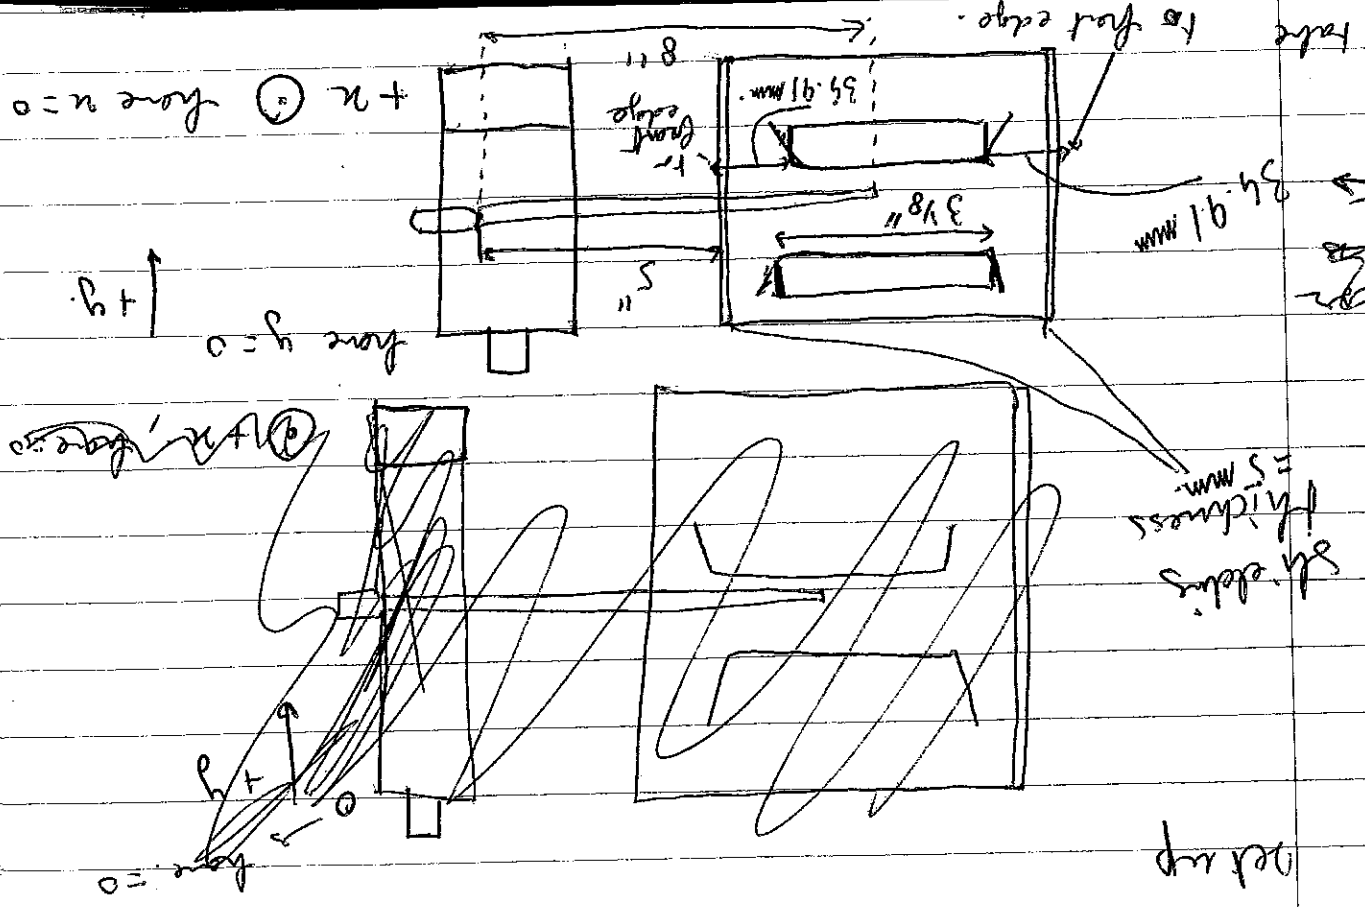 Set up
home = 0
0
+ y
Shielding
thickness
= 5 mm.
+ x, home = 0
home y = 0
+ y.
5"
3 1/8"
34.91 mm
to front edge
34.91 mm.
+ x home x = 0
8"
take to front edge.